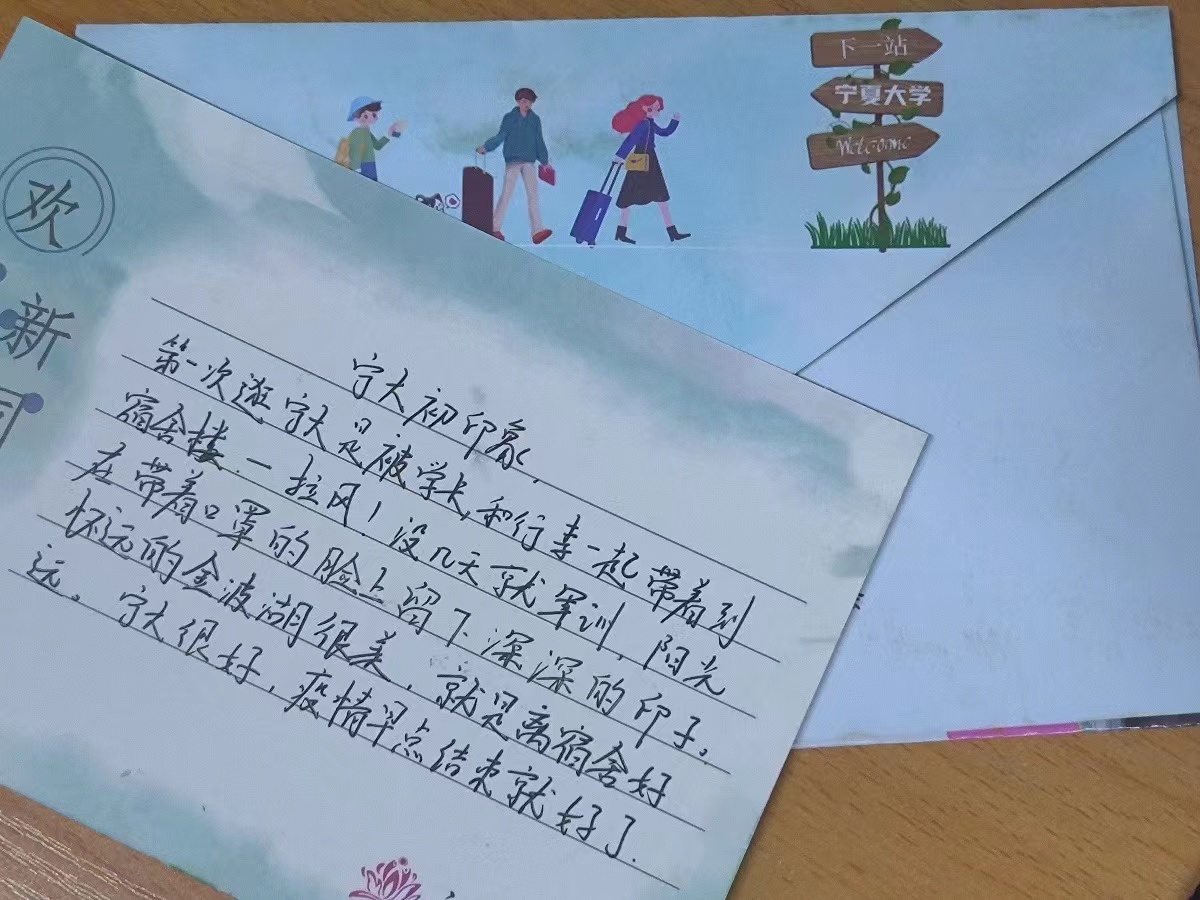 下一站
宁夏大学
Welcome
欢
新
同
宁大初印象
第一次逛宁大是被学长和行李一起带着到
宿舍楼.一拉风!没几天就军训,阳光
在带着口罩的脸上留下深深的印子。
怀远的金波湖很美,就是离宿舍好
远。宁大很好,疫情早点结束就好了.